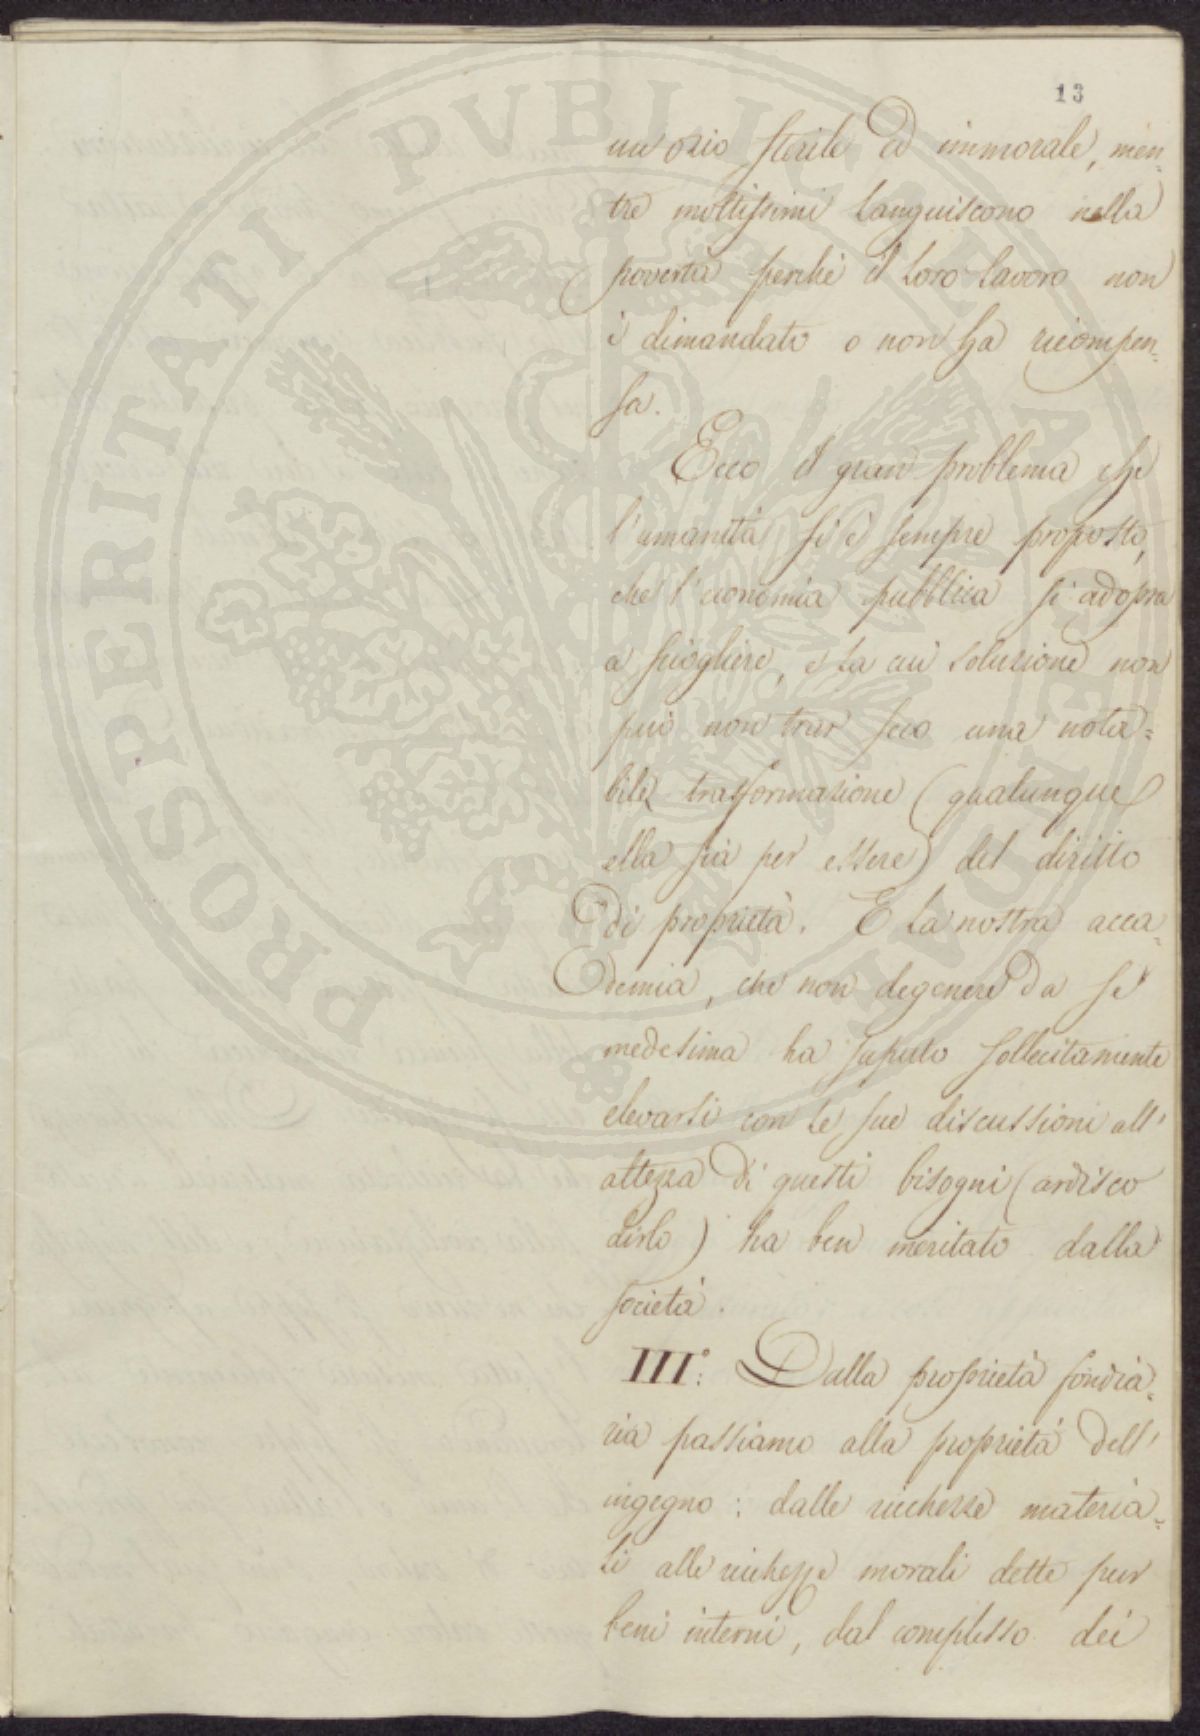 13
un ozio sterile ed immorale, men=
tre moltissimi languiscono nella
povertà perchè il loro lavoro non
è dimandato o non ha ricompen=
sa.
Ecco il gran problema che
l'umanità si è sempre proposto,
che l'economia pubblica si adopra
a sciogliere, e la cui soluzione non
può non trar seco una nota=
bile trasformazione (qualunque
ella sia per essere) del diritto
di proprietà. E la nostra acca=
demia, che non degenere da sè
medesima ha saputo sollecitamente
elevarsi con le sue discussioni all'
altezza di questi bisogni (ardisco
dirlo) ha ben meritato dalla
società.
III°: Dalla proprietà fondia=
ria passiamo alla proprietà dell'
ingegno: dalle ricchezze materia=
li alle ricchezze morali dette pur
beni interni, dal complesso dei
PROSPERITATI PVBLICAE